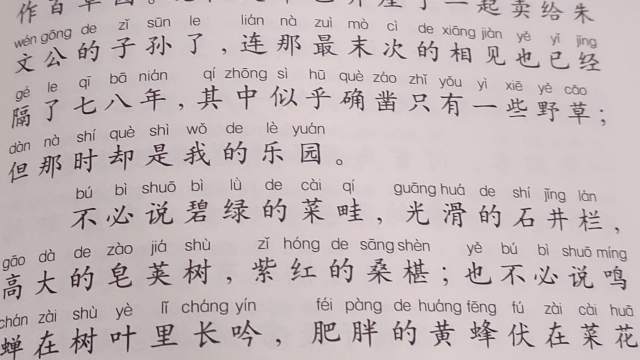 wén gōng de zǐ sūn le lián nà zuì mò cì de xiāng jiàn yě yǐ jīng
文公的子孙了，连那最末次的相见也已经
gé le qī bā nián qí zhōng sì hū què záo zhǐ yǒu yì xiē yě cǎo
隔了七八年，其中似乎确凿只有一些野草；
dàn nà shí què shì wǒ de lè yuán
但那时却是我的乐园。
bú bì shuō bì lǜ de cài qí guāng huá de shí jǐng lán
不必说碧绿的菜畦，光滑的石井栏，
gāo dà de zào jiá shù zǐ hóng de sāng shèn yě bú bì shuō míng
高大的皂荚树，紫红的桑椹；也不必说鸣
chán zài shù yè lǐ cháng yín féi pàng de huáng fēng fú zài cài huā
蝉在树叶里长吟，肥胖的黄蜂伏在菜花